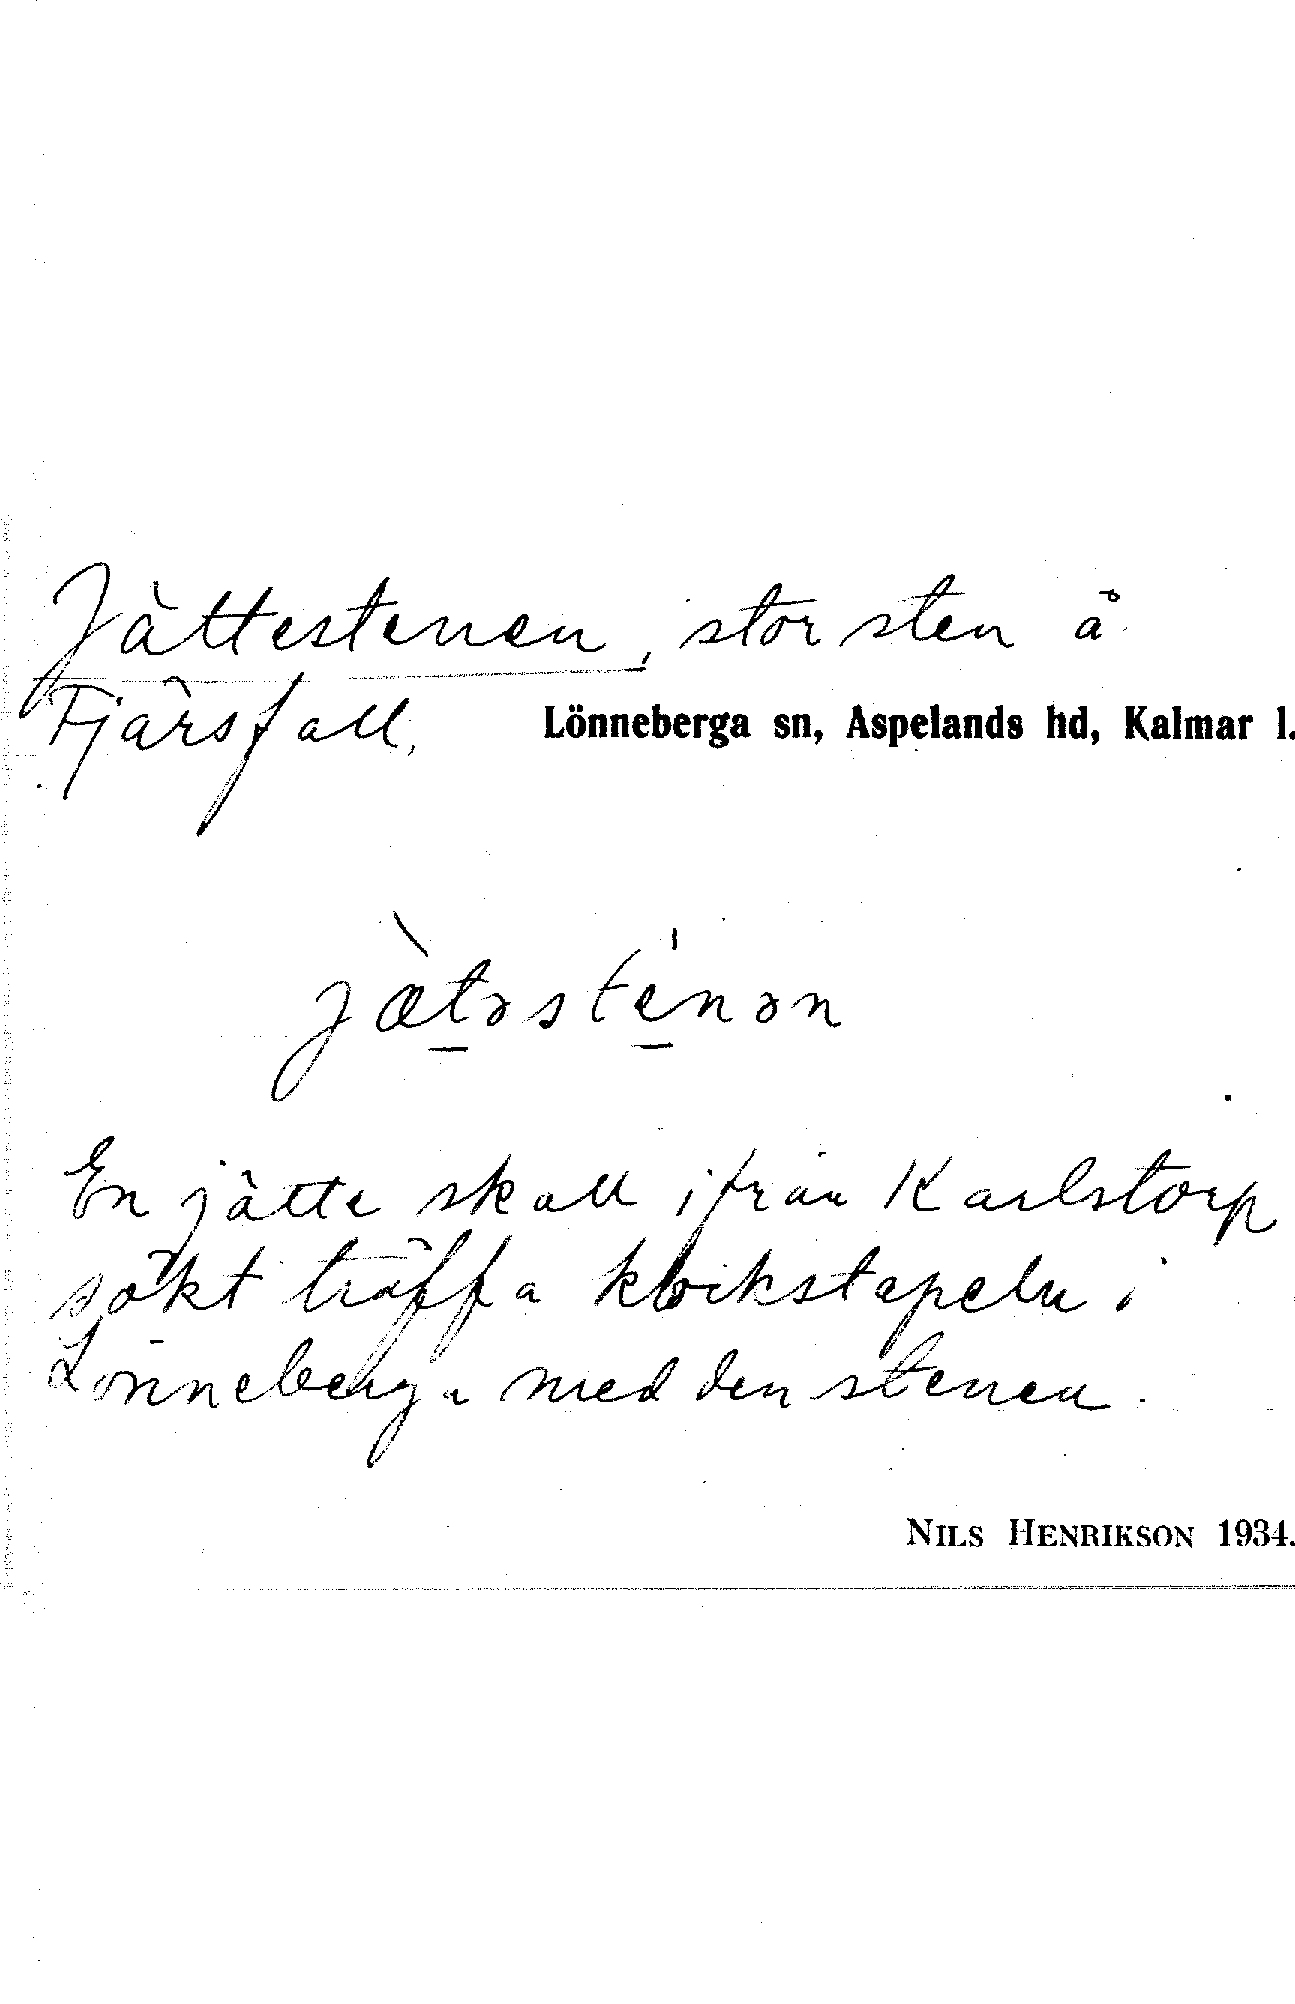 Jättestenen, stor sten å
Fjärsfall. Lönneberga sn, Aspelands hd, Kalmar l.
jæ̀təste̍nən
En jätte skall ifrån Karlstorp
sökt träffa klockstapeln i
Lönneberga med den stenen.
NILS HENRIKSON 1934.